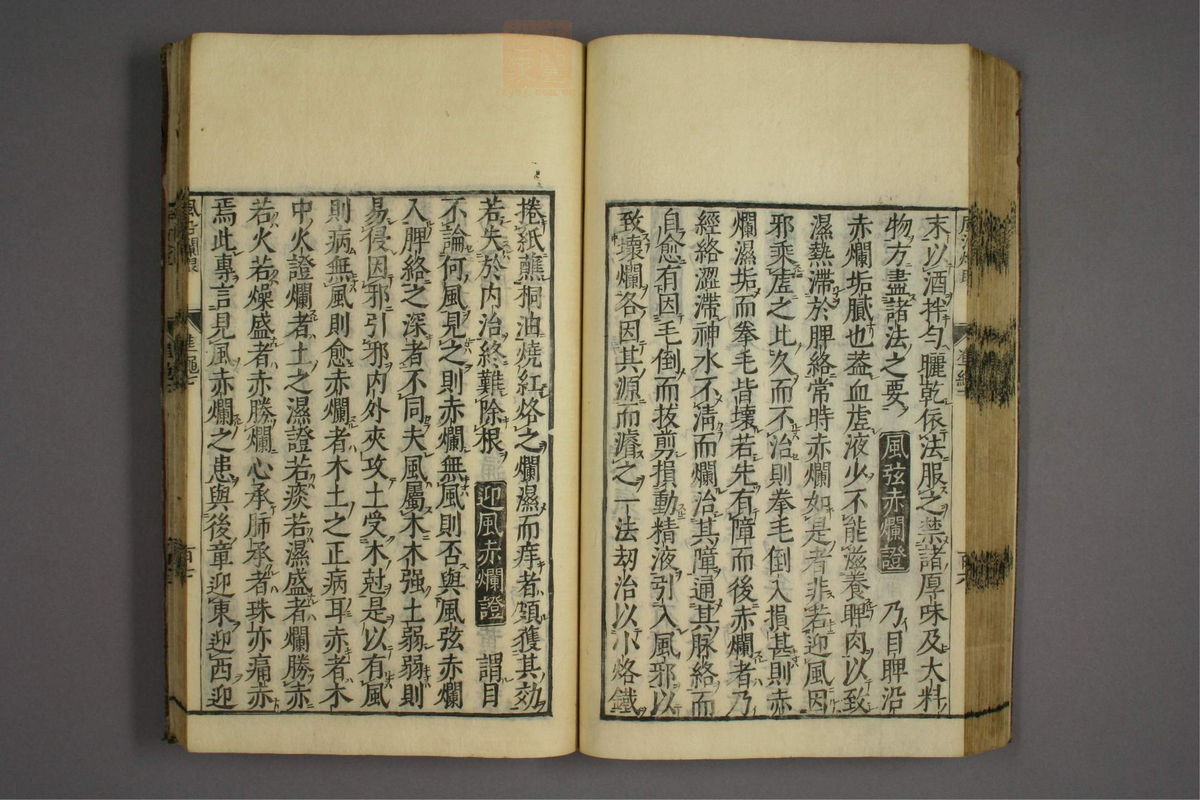 末以酒拌勻曬乾依法服之禁諸厚味及大料
物方盡諸法之要 風弦赤爛證 乃目睥沿
赤爛垢膩也葢血虗液少不能滋養睥肉以致
濕熱滯於脾絡常時赤爛如是者非若迎風因
邪乘虗之比久而不治則拳毛倒入損甚則赤
爛濕垢而拳毛皆壞若先有障而後赤爛者乃
經絡澀滯神水不淸而爛治其障通其脉絡而
自愈有因毛倒而拔剪損動精液引入風邪以
致壞爛各因其源而瘳之一法刼治以小烙鐵
捲紙蘸桐油燒紅烙之爛濕而痒者頗獲其効
若失於内治終難除根 迎風赤爛證 謂目
不論何風見之則赤爛無風則否與風弦赤爛
入脾絡之深者不同夫風屬木木强土弱弱則
易侵因邪引邪内外夾攻土受木尅是以有風
則病無風則愈赤爛者木土之正病耳赤者木
中火證爛者土之濕證若痰若濕盛者爛勝赤
若火若燥盛者赤勝爛心承肺承者珠亦痛赤
焉此專言見風赤爛之患與後章迎東迎西迎